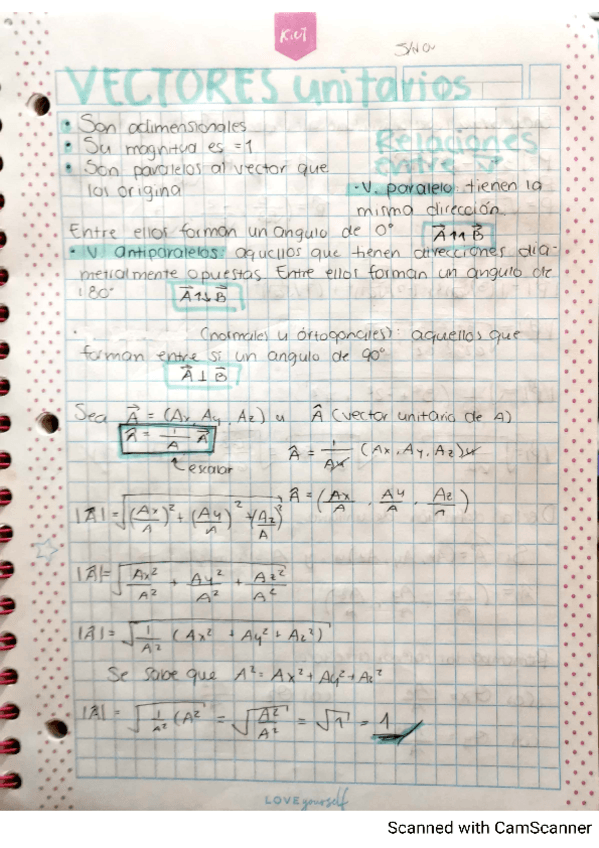 VECTORES unitarios
• Son adimensionales
• Su magnitud es =1
• Son paralelos al vector que
los origina
Relaciones
entre
• V. paralelo: tienen la
misma dirección.
Entre ellos forman un angulo de 0° A⃗ ↑↑ B⃗
• V. Antiparalelos: aquellos que tienen direcciones dia-
metralmente opuestas. Entre ellos forman un angulo de
180° A⃗ ↑↓ B⃗
(normales u ortogonales): aquellos que
forman entre si un angulo de 90°
A⃗ ⊥ B⃗
Sea A⃗ = (Ax, Ay, Az) u Â (vector unitario de A)
Â = 1/A A⃗
escalar
Â = (Ax, Ay, Az)
Â = (Ax/A, Ay/A, Az/A)
|Â| = √((Ax/A)² + (Ay/A)² + (Az/A)²)
|Â| = √(Ax²/A² + Ay²/A² + Az²/A²)
|Â| = √(1/A² (Ax² + Ay² + Az²))
Se sabe que A² = Ax² + Ay² + Az²
|Â| = √(1/A² (A²) = √(A²/A²) = √1 = 1
LOVE yourself
Scanned with CamScanner